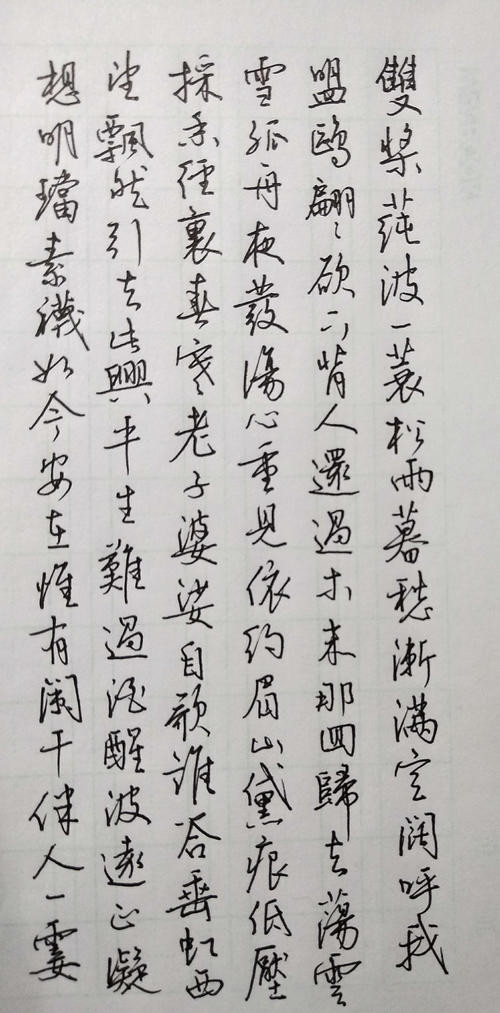 雙槳蓴波一蓑松雨暮愁漸滿空闊呼我
盟鷗翩々欲下背人還過木末那回歸去蕩雲
雪孤舟夜發傷心重見依約眉山黛痕低壓
採香徑裏春寒老子婆娑自歌誰答垂虹西
望飄然引去此興平生難遏酒醒波遠正凝
想明璫素襪如今安在惟有闌干伴人一霎